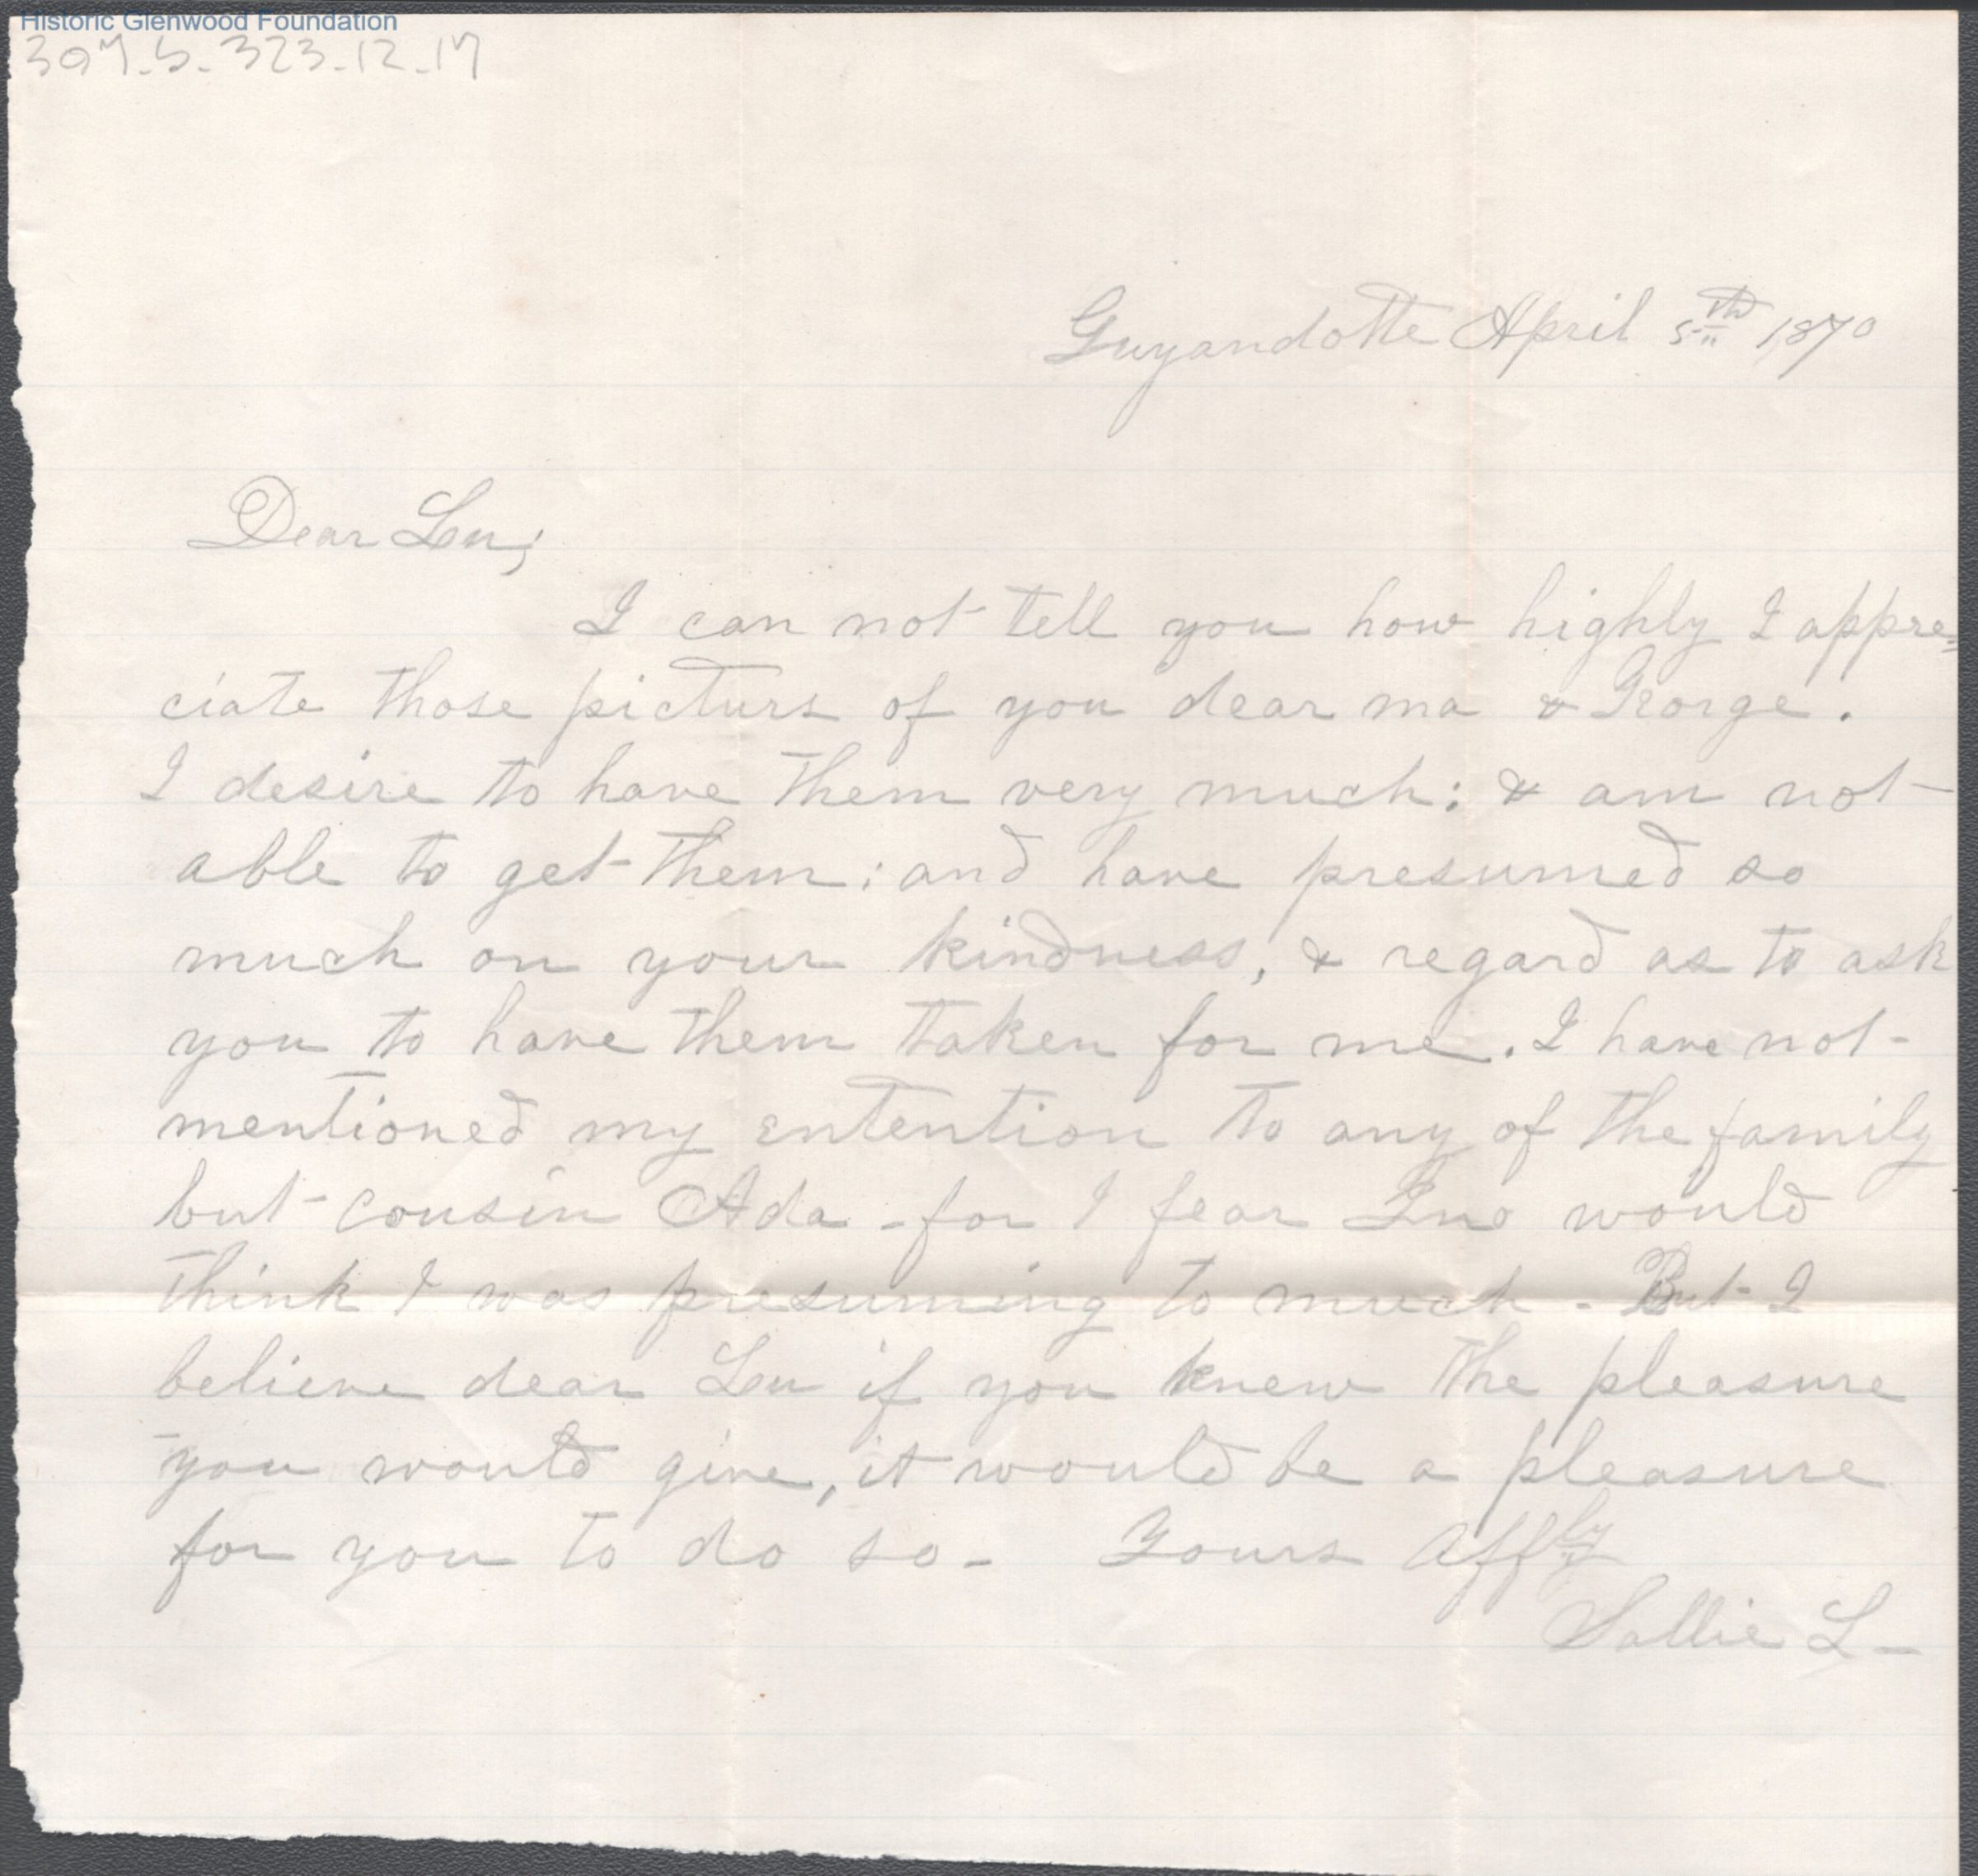 Historic Glenwood Foundation
307.5.323.12.17
Guyandotte April 5th 1870
Dear Lou;
I can not tell you how highly I appre=
ciate those picturs of you dear ma & George.
I desire to have them very much: & am not
able to get them; and have presumed so
much on your kindness, & regard as to ask
you to have them taken for me. I have not
mentioned my entention to any of the family
but cousin Ada - for I fear Jno would
think I was presuming to much - But I
believe dear Lou if you knew the pleasure
you would give, it would be a pleasure
for you to do so - Yours affly
Sallie L -